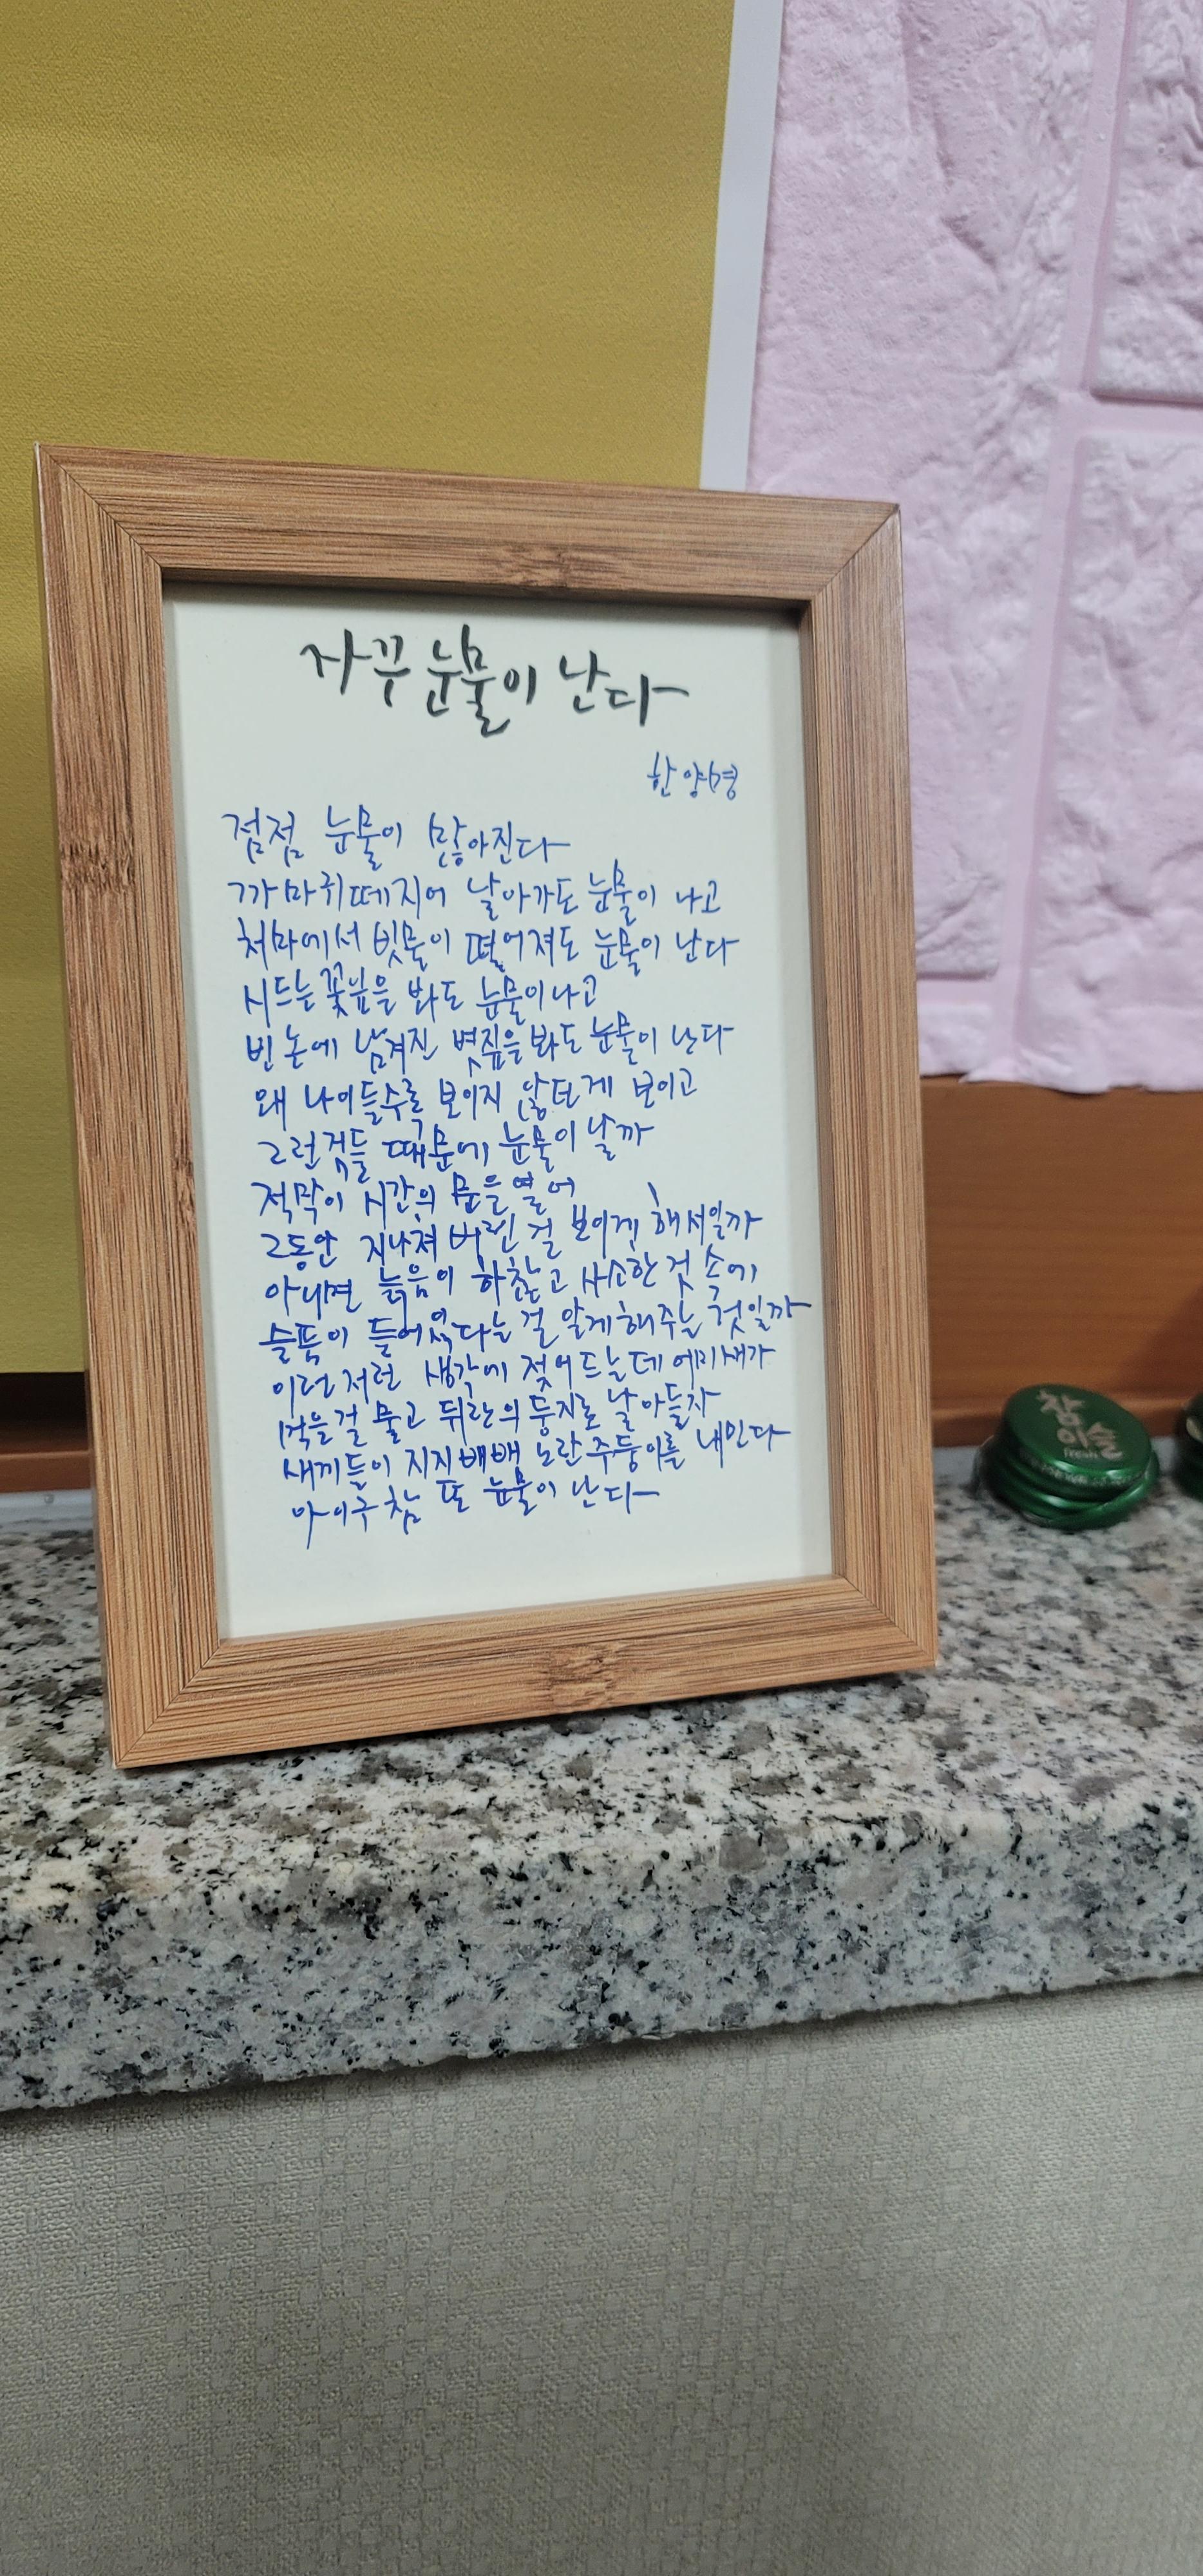 자꾸 눈물이 난다
한양명
점점 눈물이 많아진다
까마귀떼지어 날아가도 눈물이 나고
처마에서 빗물이 떨어져도 눈물이 난다
시드는 꽃잎을 봐도 눈물이나고
빈 논에 남겨진 볏짚을 봐도 눈물이 난다
왜 나이들수록 보이지 않던게 보이고
그런것들 때문에 눈물이 날까
적막이 시간의 문을 열어
그동안 지나쳐 버린 걸 보이게 해서일까
아니면 늙음이 하찮고 사소한 것 속에
슬픔이 들어있다는 걸 알게해주는 것일까
이런저런 생각에 젖어드는데 에미새가
먹을걸 물고 뒤란의 둥지로 날아들자
새끼들이 지지배배 노란주둥이를 내민다
아이구 참 또 눈물이 난다
참
이슬
fresh